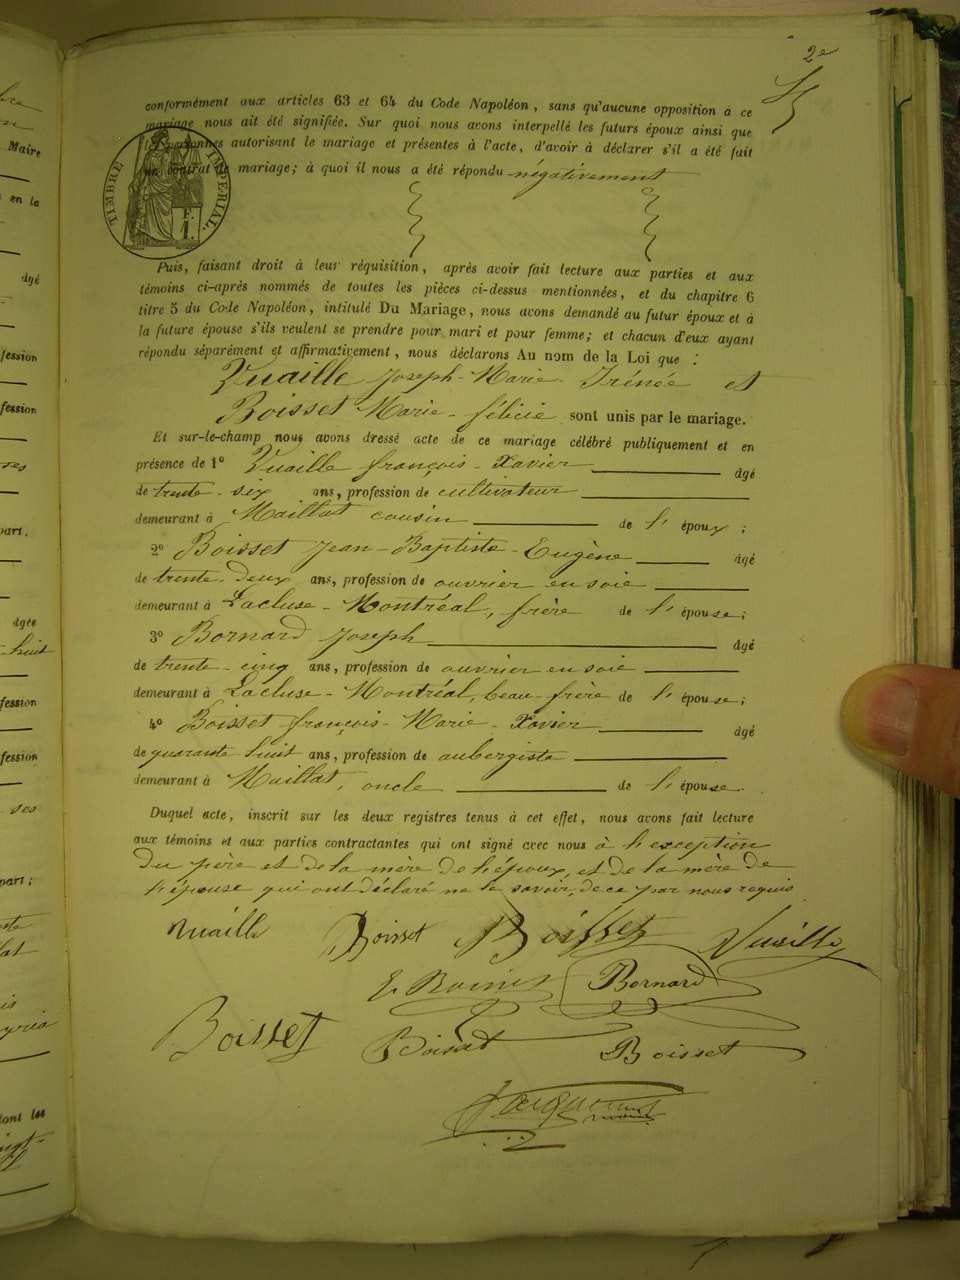 2e
conformément aux articles 63 et 64 du Code Napoléon, sans qu'aucune opposition à ce
mariage nous ait été signifiée. Sur quoi nous avons interpellé les futurs époux ainsi que
les personnes autorisant le mariage et présentes à l'acte, d'avoir à déclarer s'il a été fait
un contrat de mariage; à quoi il nous a été répondu négativement
TIMBRE IMPÉRIAL
F.
1.
Puis, faisant droit à leur réquisition, après avoir fait lecture aux parties et aux
témoins ci-après nommés de toutes les pièces ci-dessus mentionnées, et du chapitre 6
titre 5 du Code Napoléon, intitulé Du Mariage, nous avons demandé au futur époux et à
la future épouse s'ils veulent se prendre pour mari et pour femme; et chacun d'eux ayant
répondu séparément et affirmativement, nous déclarons Au nom de la Loi que :
Vuaille Joseph-Marie-Irénée et
Boisset Marie-félicie sont unis par le mariage.
Et sur-le-champ nous avons dressé acte de ce mariage célébré publiquement et en
présence de 1o Vuaille françois-Xavier âgé
de trente-six ans, profession de cultivateur
demeurant à Maillat cousin de l'époux;
2o Boisset Jean-Baptiste-Eugène âgé
de trente-deux ans, profession de ouvrier en soie
demeurant à Lacluse-Montréal, frère de l'épouse;
3o Bornard Joseph âgé
de trente-cinq ans, profession de ouvrier en soie
demeurant à Lacluse-Montréal, beau-frère de l'épouse;
4o Boisset françois-Marie-Xavier âgé
de quarante huit ans, profession de aubergiste
demeurant à Maillat, oncle de l'épouse.
Duquel acte, inscrit sur les deux registres tenus à cet effet, nous avons fait lecture
aux témoins et aux parties contractantes qui ont signé avec nous à l'exception
du père et de la mère de l'époux, et de la mère de
l'épouse qui ont déclaré ne le savoir, de ce par nous requis
Vuaille Boisset Boisset Vuaille
Bornard
Boisset Boisset Boisset